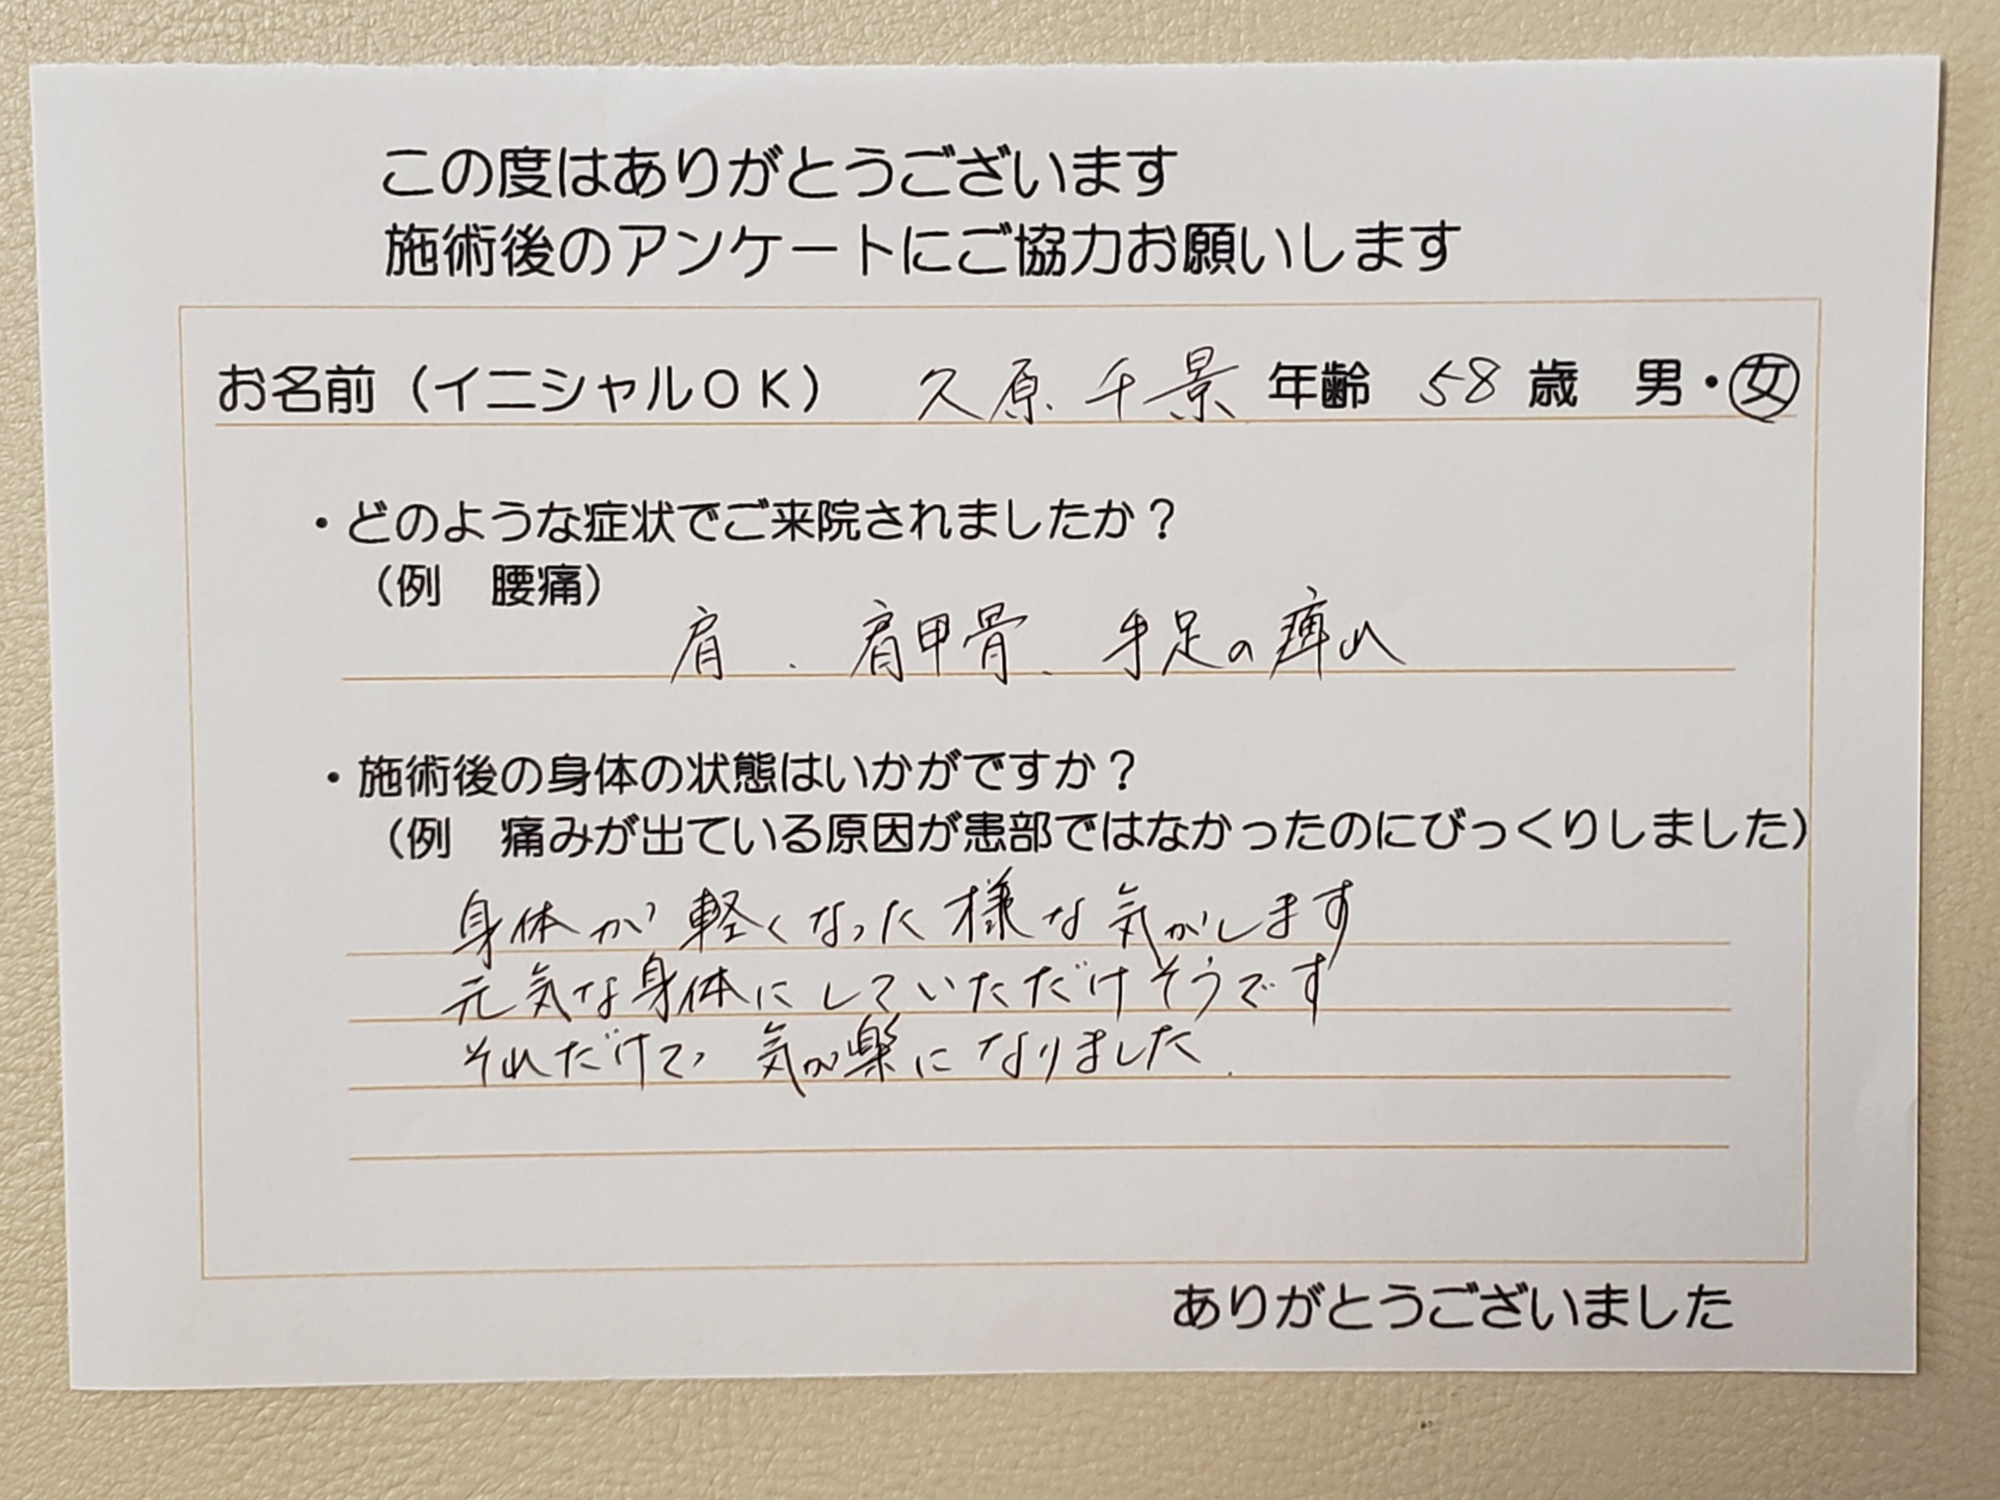 この度はありがとうございます
施術後のアンケートにご協力お願いします
お名前（イニシャルＯＫ） 久原 千景 年齢 58 歳 男・女
・どのような症状でご来院されましたか？
（例 腰痛）
肩 . 肩甲骨. 手足の痺れ
・施術後の身体の状態はいかがですか？
（例 痛みが出ている原因が患部ではなかったのにびっくりしました）
身体が軽くなった様な気がします
元気な身体にしていただけそうです
それだけで気が楽になりました.
ありがとうございました